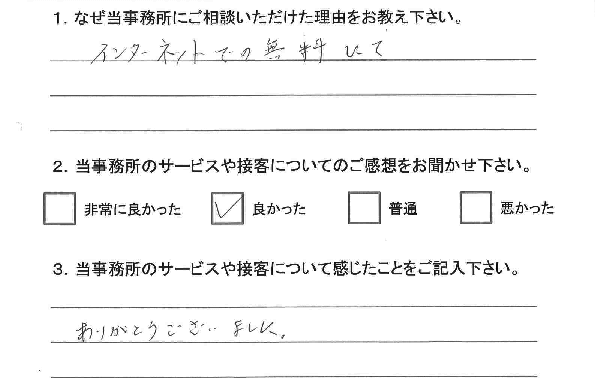 1. なぜ当事務所にご相談いただけた理由をお教え下さい。
インターネットでの無料にて
2. 当事務所のサービスや接客についてのご感想をお聞かせ下さい。
非常に良かった 良かった 普通 悪かった
3. 当事務所のサービスや接客について感じたことをご記入下さい。
ありがとうございました。